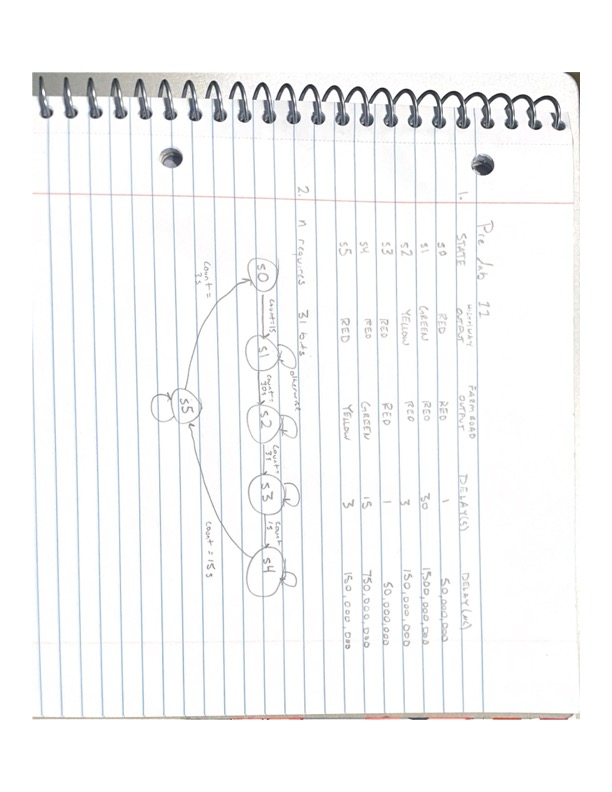 Pre lab 11
1. STATE HIGHWAY OUTPUT FARM ROAD OUTPUT DELAY(s) DELAY(
S0 RED RED 1 50,000,000
S1 GREEN RED 30 1500,000,000
S2 YELLOW RED 3 150,000,000
S3 RED RED 1 50,000,000
S4 RED GREEN 15 750,000,000
S5 RED YELLOW 3 150,000,000
2. n requires 31 bits
otherwise
S0 count=1s S1 count= 30s S2 count= 3s S3 count 1s S4
count = 3s
S5
count = 15s